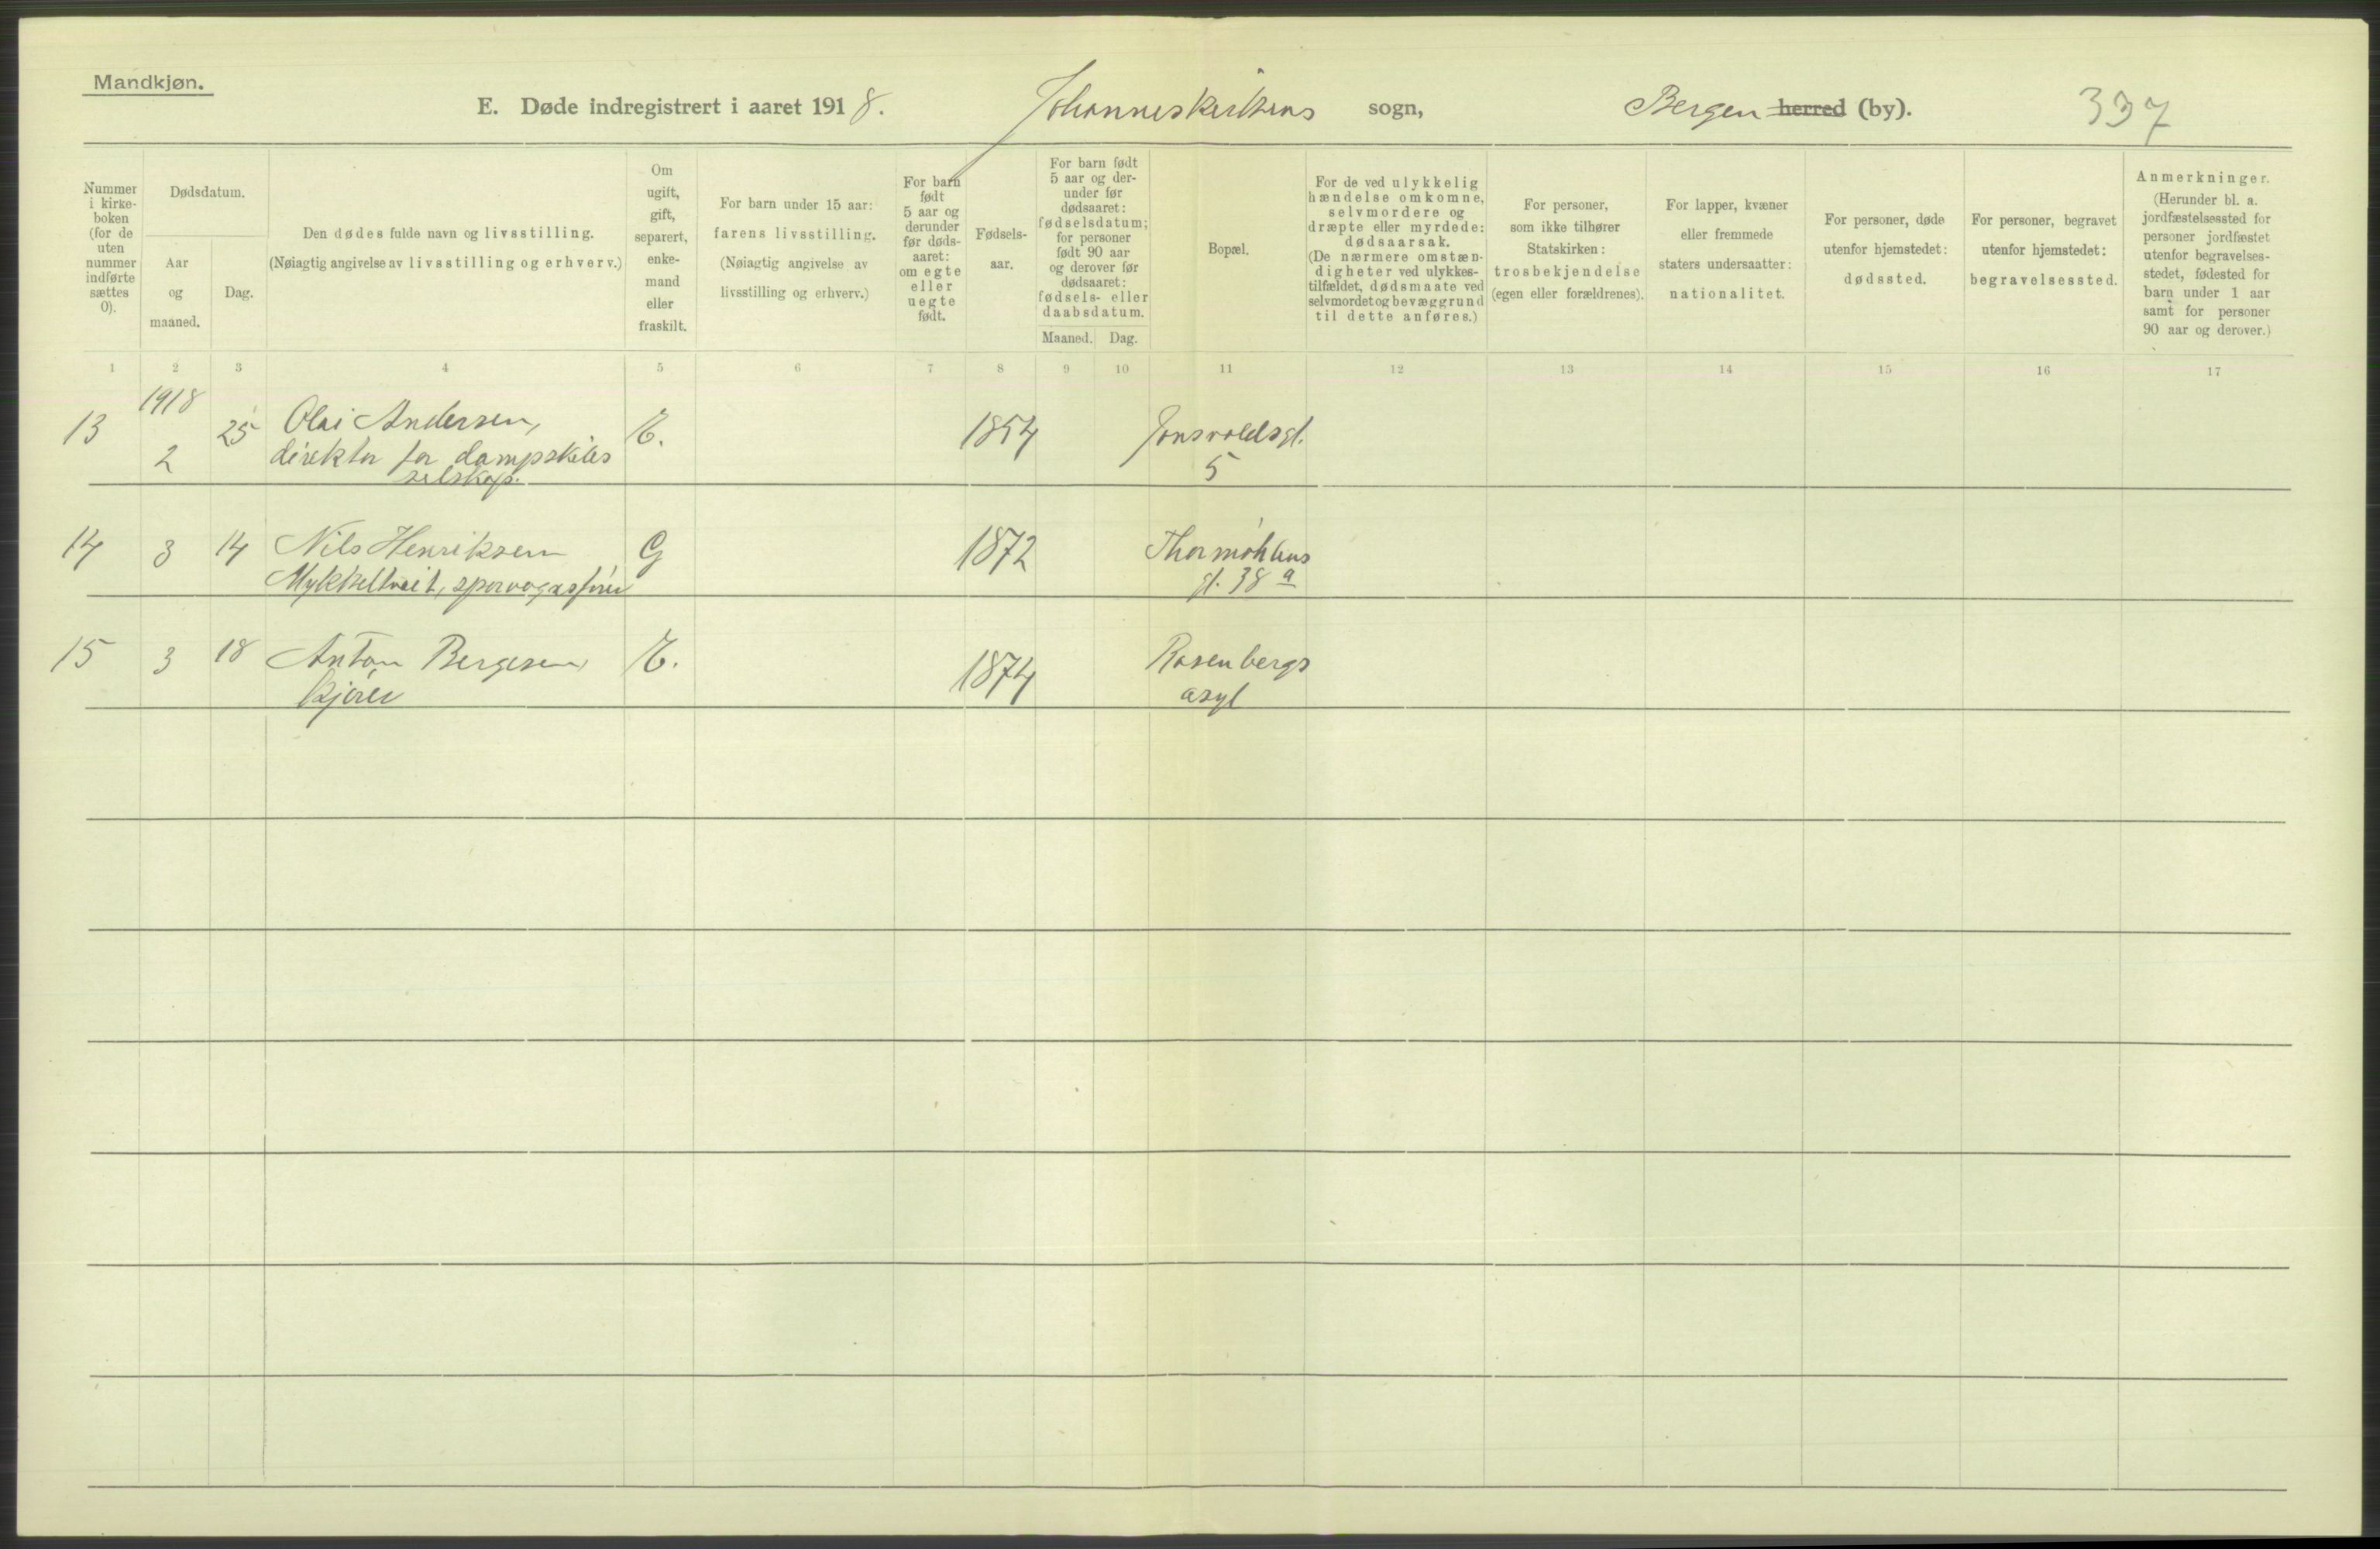 Mandkjøn.
E. Døde indregistrert i aaret 1918. Johanneskirkens sogn, Bergen herred (by). 337
Nummer i kirke-boken (for de uten nummer indførte sættes 0).
Dødsdatum.
Aar og maaned.
Dag.
Den dødes fulde navn og livsstilling.
(Nøiagtig angivelse av livsstilling og erhverv.)
Om ugift, gift, separert, enke-mand eller fraskilt.
For barn under 15 aar:
farens livsstilling.
(Nøiagtig angivelse av
livsstilling og erhverv.)
For barn født 5 aar og derunder før døds-aaret: om egte eller uegte født.
Fødsels-aar.
For barn født 5 aar og der-under før dødsaaret: fødselsdatum; for personer født 90 aar og derover før dødsaaret: fødsels- eller daabsdatum.
Maaned. Dag.
Bopæl.
For de ved ulykkelig hændelse omkomne, selvmordere og dræpte eller myrdede: dødsaarsak.
(De nærmere omstæn-digheter ved ulykkes-tilfældet, dødsmaate ved selvmordet og bevæggrund til dette anføres.)
For personer, som ikke tilhører Statskirken: trosbekjendelse (egen eller forældrenes).
For lapper, kvæner eller fremmede staters undersaatter: nationalitet.
For personer, døde utenfor hjemstedet: dødssted.
For personer, begravet utenfor hjemstedet: begravelsessted.
Anmerkninger.
(Herunder bl. a. jordfæstelsessted for personer jordfæstet utenfor begravelses-stedet, fødested for barn under 1 aar samt for personer 90 aar og derover.)
1 2 3 4 5 6 7 8 9 10 11 12 13 14 15 16 17
1918
13 2 25 Olai Andersen, E. 1854 Jonsvoldsgt.
direktør for dampskibs 5
selskap.
14 3 14 Nils Henriksen G 1872 Thormøhlens
Mykkeltveit, sporvognsfører gt. 38 a
15 3 18 Anton Bergesen E. 1874 Rosenbergs
kjører asyl